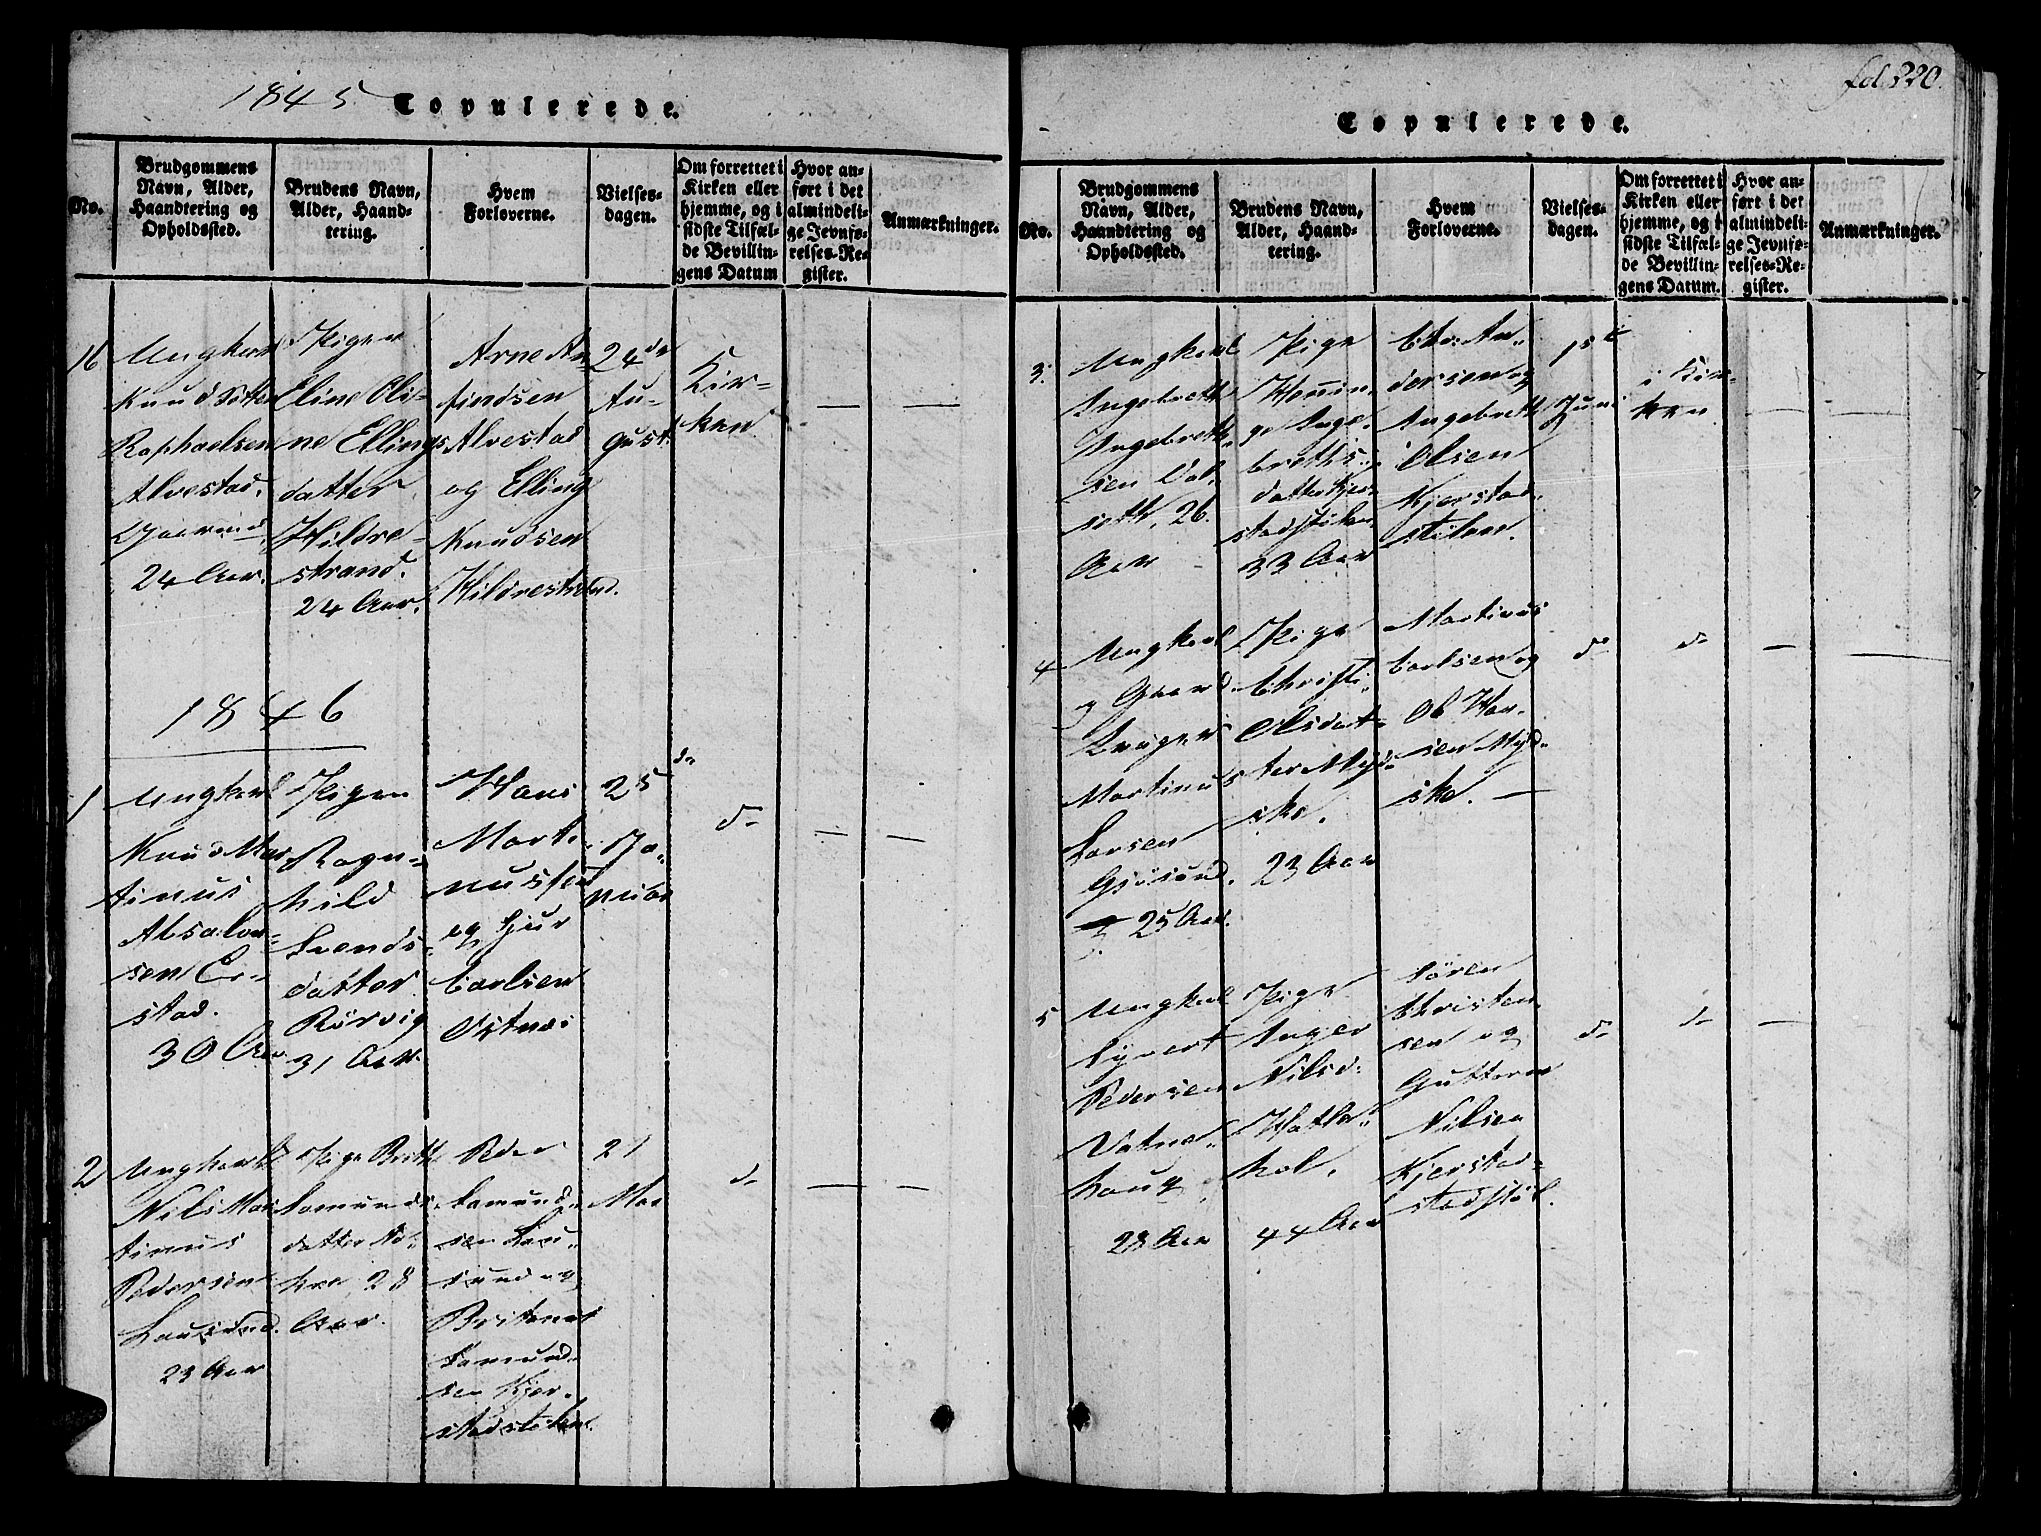 1845. Copulerede.
No.
Brudgommens
Navn, Alder,
Haandtering og
Opholdssted.
Brudens Navn,
Alder, Haand-
tering.
Hvem
Forloverne.
Vielses-
dagen.
Om forrettet i
Kirken eller
hjemme, og i
sidste Tilfæl-
de Bevillin-
gens Datum
Hvor an-
ført i det
almindeli-
ge Jevnfø-
relses-Re-
gister.
Anmærkninger.
16
Ungkarl
Knud
Raphaelsen
Alvestad.
24 Aar.
Pigen
Eline Oli-
ne Ellings
datter
Hildre-
strand.
24 Aar.
Arne An-
findsen
Alvestad
og Elling
Knudsen
Hildrestrand.
24de
Au-
gust.
Kir-
ken
— —
1846
1
Ungkarl
Knud Mar
tinus
Absalon-
sen Er-
stad.
30 Aar
Pigen
Ragn-
hild
Svends-
datter
Rörvig
31 Aar.
Hans
Marti-
nussen
og Sjur
Carlsen
Östnæs
25de
Ja-
nuar
do
— —
2
Ungkarl
Nils Mar
tinus
Pedersen
Lausund.
23 Aar
Pige Brithe
Samunds-
datter
28
Aar.
Peder
Samund-
sen Lau-
sund og
Samund-
sen Kjer-
stadstölen.
21
Mai
do
— —
fol 220.
Copulerede.
No.
Brudgommens
Navn, Alder,
Haandtering og
Opholdssted.
Brudens Navn,
Alder, Haand-
tering.
Hvem
Forloverne.
Vielses-
dagen.
Om forrettet i
Kirken eller
hjemme, og i
sidste Tilfæl-
de Bevillin-
gens Datum.
Hvor an-
ført i det
almindeli-
ge Jevnfø-
relses-Re-
gister.
Anmærkninger.
3.
Ungkarl
Ingebreth
Ingebreth-
sen Dal-
seth, 26.
Aar
Pige
Hennin-
ge Inge-
breths-
datter Kjer-
stadstölen
33 Aar
Chr. An-
dersen og
Ingebreth
Olsen
Kjerstad-
stölen.
1ste
Juni
i Kir-
ken
— —
4
Ungkarl
og Gaard-
bruger
Martinus
Larsen
Gjösund.
25 Aar.
Pige
Christi-
Olsdat-
ter Myd-
ske.
23 Aar
Martinus
Carlsen og
Ol Han-
sen Myd-
ske. —
do
do
— —
5
Ungkarl
Syvert
Pedersen
Vatne-
houg
28 Aar
Pige
Inger
Nilsd.
Hatle-
hol.
44 Aar
Sören
Christen-
sen og
Guttorm
Nilsen
Kjerstad-
stadstöl.
do
do
—